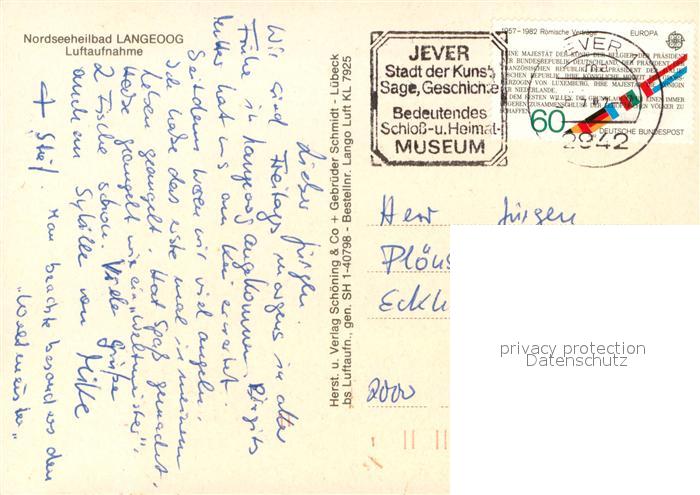 Nordseeheilbad LANGEOOG
Luftaufnahme
Lieber Jürgen.
Wir sind Freitags morgens in alter
Frühe in Langeoog angekommen. Birgits
Mutter hat uns am Kai erwartet.
Seitdem waren wir viel angeln.
Ich habe das erste mal in meinem
Leben geangelt. Hat Spaß gemacht.
Habe geangelt wie ein „Weltmeister".
2 Fische schon. Viele Grüße
auch an Sybille von Mike
+ Stef. Man beachte besonders den
„Weltmeister"
Herst. u. Verlag Schöning & Co + Gebrüder Schmidt - Lübeck
bs Luftaufn., gen. SH 1-40798 - Bestellnr. Lango Luft KL 7925
JEVER
Stadt der Kunst
Sage, Geschichte
Bedeutendes
Schloß-u. Heimat-
MUSEUM
1957-1982 Römische Verträge EUROPA
60
DEUTSCHE BUNDESPOST
JEVER
2942
Herr Jürgen
2000
privacy protection
Datenschutz